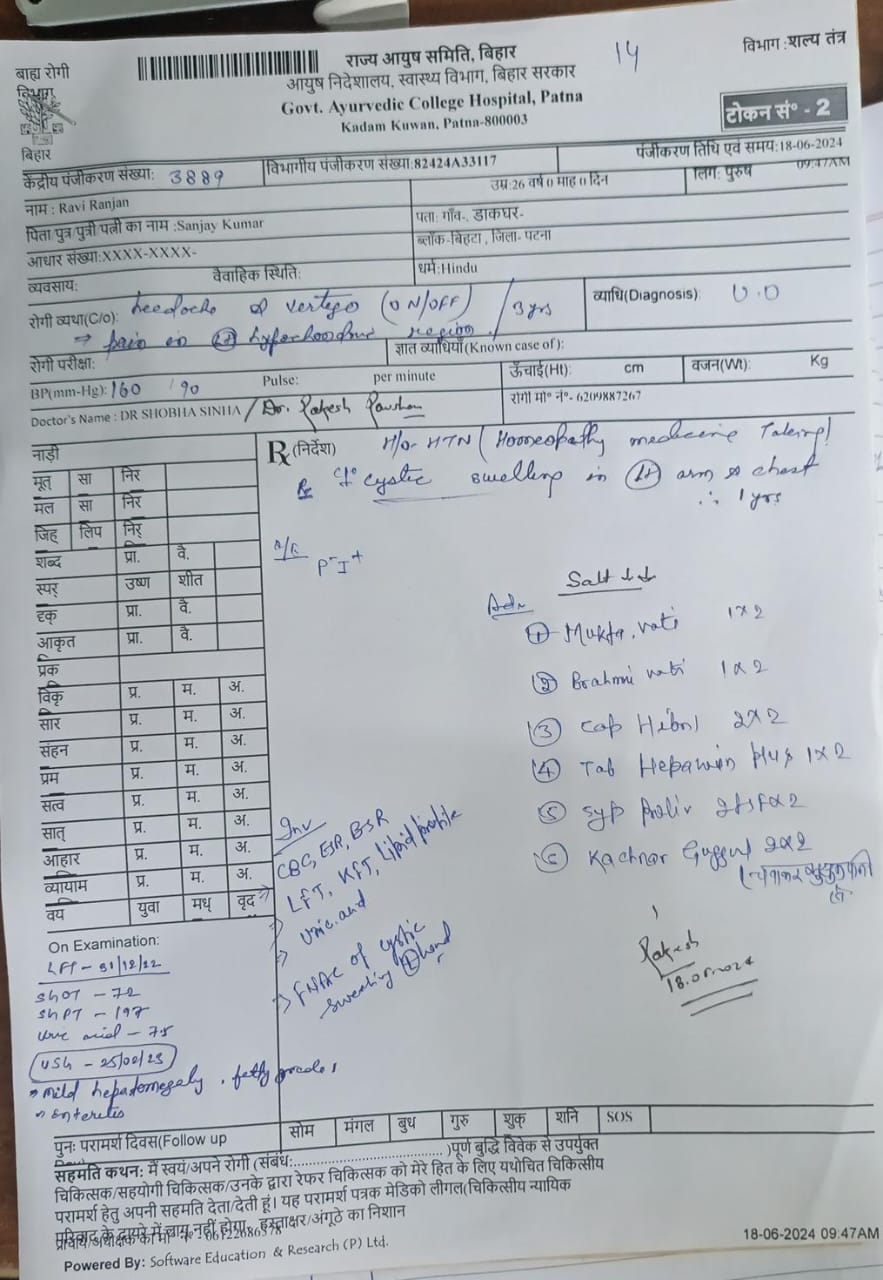 14
राज्य आयुष समिति, बिहार
आयुष निदेशालय, स्वास्थ्य विभाग, बिहार सरकार
Govt. Ayurvedic College Hospital, Patna
Kadam Kuwan, Patna-800003
विभाग :शल्य तंत्र
टोकन सं° - 2
बाह्य रोगी
विभाग
बिहार
केंद्रीय पंजीकरण संख्या: 3889
विभागीय पंजीकरण संख्या:82424A33117
पंजीकरण तिथि एवं समय:18-06-2024 09:47AM
नाम : Ravi Ranjan
उम्र:26 वर्ष 0 माह 0 दिन
लिंग: पुरुष
पिता/पुत्र/पुत्री/पत्नी का नाम :Sanjay Kumar
पता: गाँव-, डाकघर-
ब्लॉक-बिहटा , जिला- पटना
आधार संख्या:XXXX-XXXX-
व्यवसाय:
वैवाहिक स्थिति:
धर्म:Hindu
रोगी व्यथा(C/o): headache & vertigo (ON/OFF) / 3 yrs
→ pain in region
व्याधि(Diagnosis):
रोगी परीक्षा:
ज्ञात व्याधियाँ(Known case of):
BP(mm-Hg): 160 / 90
Pulse: per minute
ऊँचाई(Ht): cm
वजन(Wt): Kg
Doctor's Name : DR SHOBHA SINHA / Dr. Rakesh
रोगी मो° नं°- 6209887267
नाड़ी
मूत् सा निर
मल सा निर
जिह् लिप निर्
शब्द प्रा. वै.
स्पर् उष्ण शीत
दृक् प्रा. वै.
आकृत प्रा. वै.
प्रक
विकृ प्र. म. अ.
सार प्र. म. अ.
संहन प्र. म. अ.
प्रम प्र. म. अ.
सत्व प्र. म. अ.
सात् प्र. म. अ.
आहार प्र. म. अ.
व्यायाम प्र. म. अ.
वय युवा मध् वृद
Rx (निर्देश) H/o- HTN (Homeopathy medicine Taking)
cystic swelling in (Lt) arm & chest
∴ 1 yrs
P- I+
Salt ↓↓
Adv
① Mukta vati 1x2
② Brahmi vati 1x2
③ Cap 2x2
④ Tab plus 1x2
⑤ Syp
⑥ Kachnar Guggul 2x2
Inv
CBC, ESR, BSR
LFT, KFT, Lipid profile
Uric acid
FNAC of cystic
swelling
Rakesh
On Examination:
LFT - 31/12/22
SGOT - 72
SGPT - 197
Uric acid - 7.5
USG - 25/02/23
→ mild hepatomegaly, fatty grade 1
→ enteritis
पुनः परामर्श दिवस(Follow up
सोम मंगल बुध गुरु शुक् शनि SOS
सहमति कथन: में स्वयं/अपने रोगी (संबंध:........................................)पूर्ण बुद्धि विवेक से उपर्युक्त
चिकित्सक/सहयोगी चिकित्सक/उनके द्वारा रेफर चिकित्सक को मेरे हित के लिए यथोचित चिकित्सीय
परामर्श हेतु अपनी सहमति देता/देती हूं। यह परामर्श पत्रक मेडिको लीगल(चिकित्सीय न्यायिक
परिवाद के दायरे में लागू नहीं होगा, हस्ताक्षर/अंगूठे का निशान
18-06-2024 09:47AM
Powered By: Software Education & Research (P) Ltd.